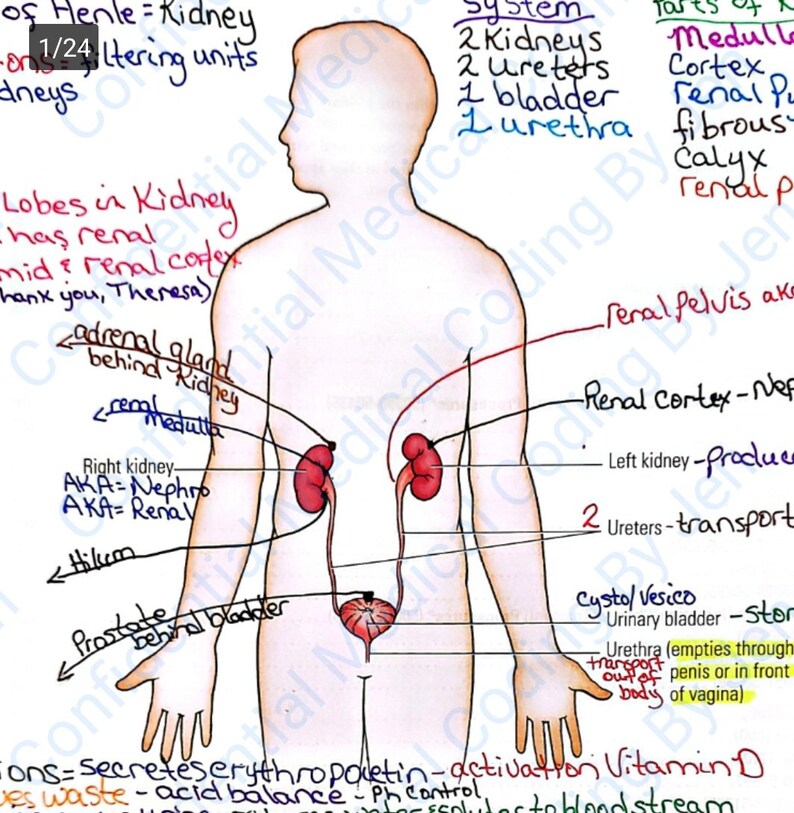 of Henle = Kidney
1/24
ons = filtering units
dneys
System
2 Kidneys
2 ureters
1 bladder
1 urethra
Parts of K
Medulla
Cortex
renal Pu
fibrous
Calyx
renal p
Lobes in Kidney
has renal
mid & renal cortex
hank you, Theresa)
adrenal gland
behind Kidney
renal
Medulla
Right kidney
AKA = Nephro
AKA = Renal
Hilum
Prostate
behind bladder
renal pelvis aka
Renal Cortex - Nep
Left kidney - produce
2 Ureters - transport
Cysto/Vesico
Urinary bladder - stor
Urethra (empties through
penis or in front
of vagina)
transport
out of
body
ions = secretes erythropoietin - activation Vitamin D
ves waste - acid balance - Ph Control
to bloodstream
Confidential Medical Coding By Jen